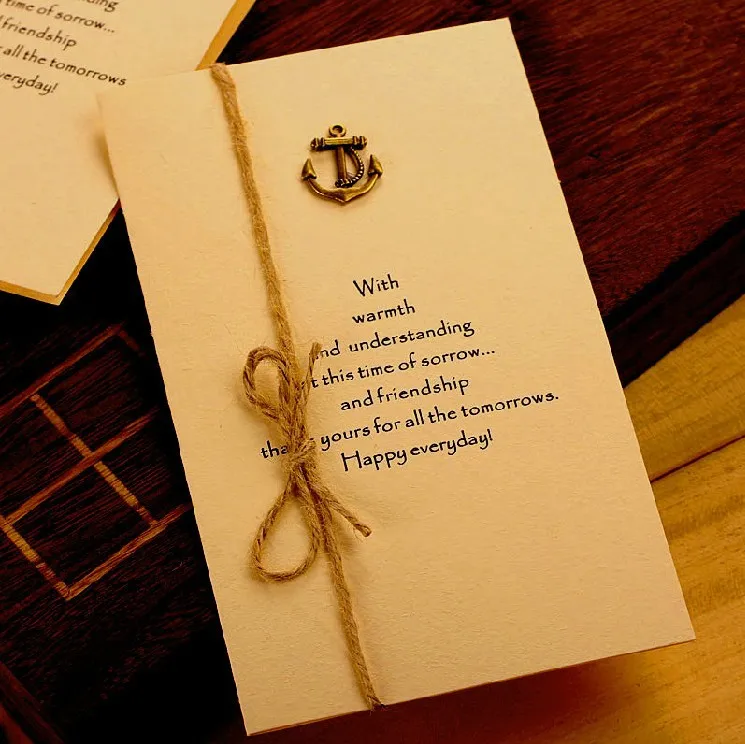 time of sorrow...
friendship
all the tomorrows
everyday!
With
warmth
nd understanding
t this time of sorrow...
and friendship
yours for all the tomorrows.
Happy everyday!